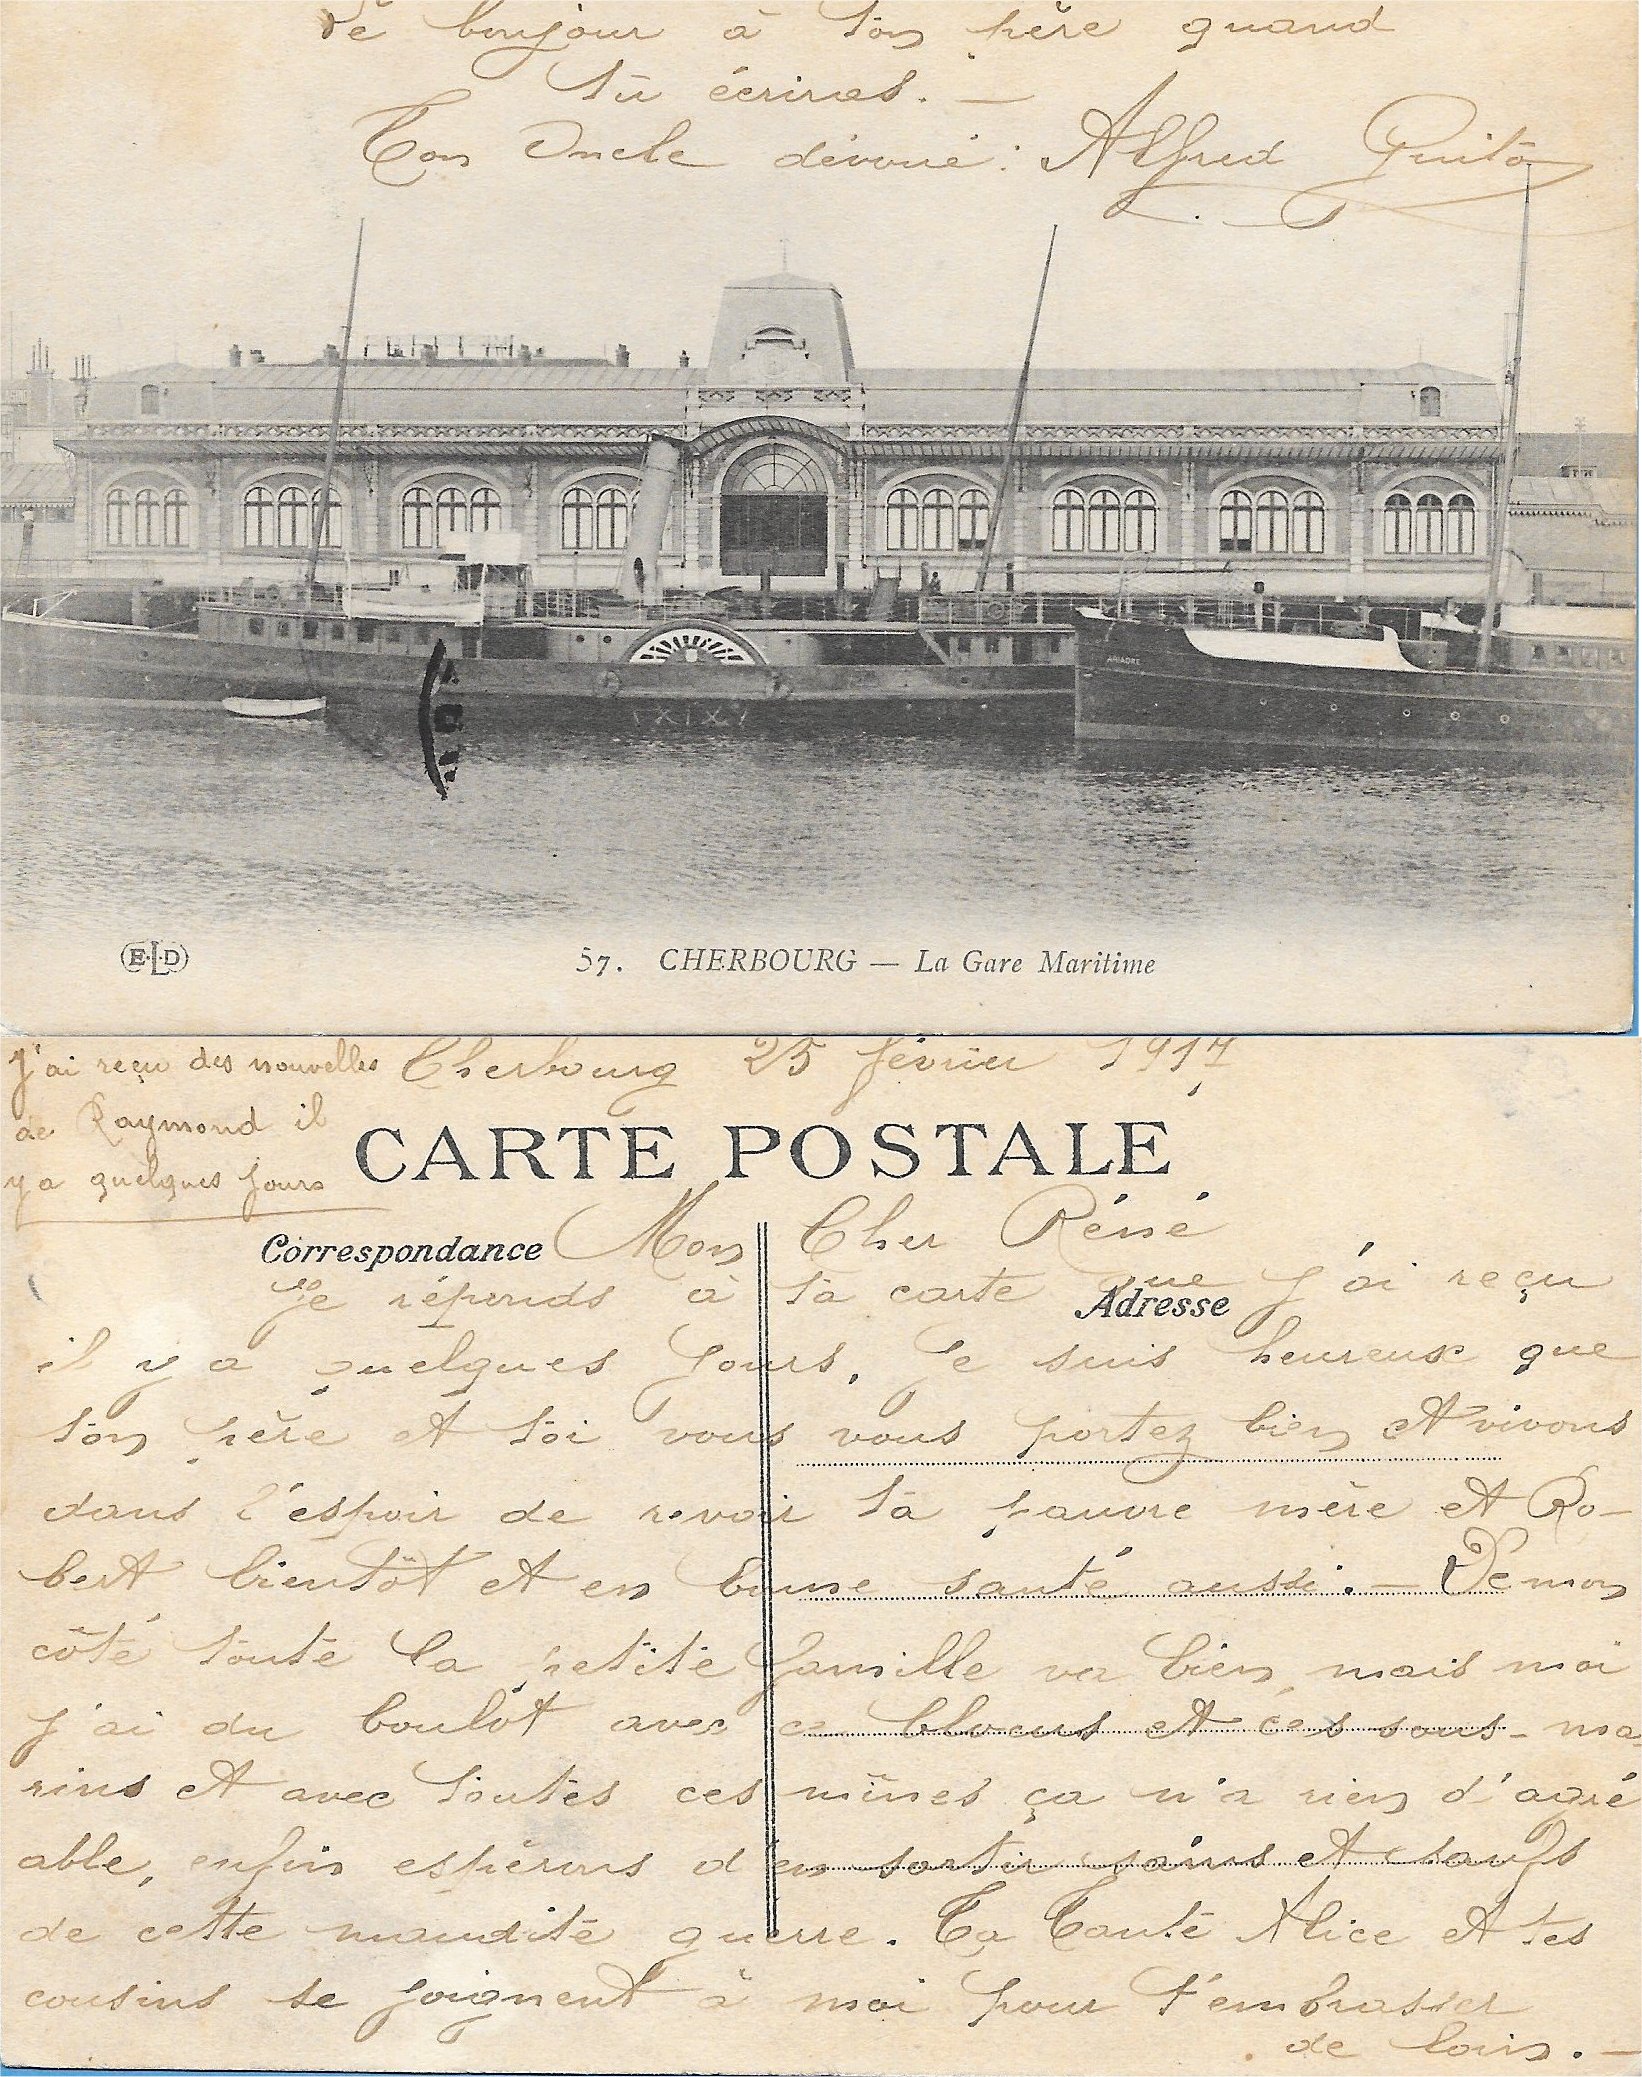 Le bonjour à ton père quand
tu écriras. —
Ton Oncle dévoué : Alfred
ARIADNE
E.L.D
57. CHERBOURG — La Gare Maritime
J'ai reçu des nouvelles
de Raymond il
y a quelques jours
Cherbourg 25 février 1917
CARTE POSTALE
Correspondance
Adresse
Mon Cher Réné
Je réponds à ta carte que j'ai reçu
il y a quelques jours, Je suis heureux que
ton père et toi vous vous portez bien et vivons
dans l'espoir de revoir ta pauvre mère et Ro-
bert bientôt et en bonne santé aussi. — De mon
côté toute la petite famille va bien, mais moi
j'ai du boulot avec ce blocus et ces sous-ma-
rins et avec toutes ces mines ça n'a rien d'agré
able, enfin espérons d'en sortir sains et saufs
de cette maudite guerre. Ta Tante Alice et tes
cousins se joignent à moi pour t'embrasser
de loin. —